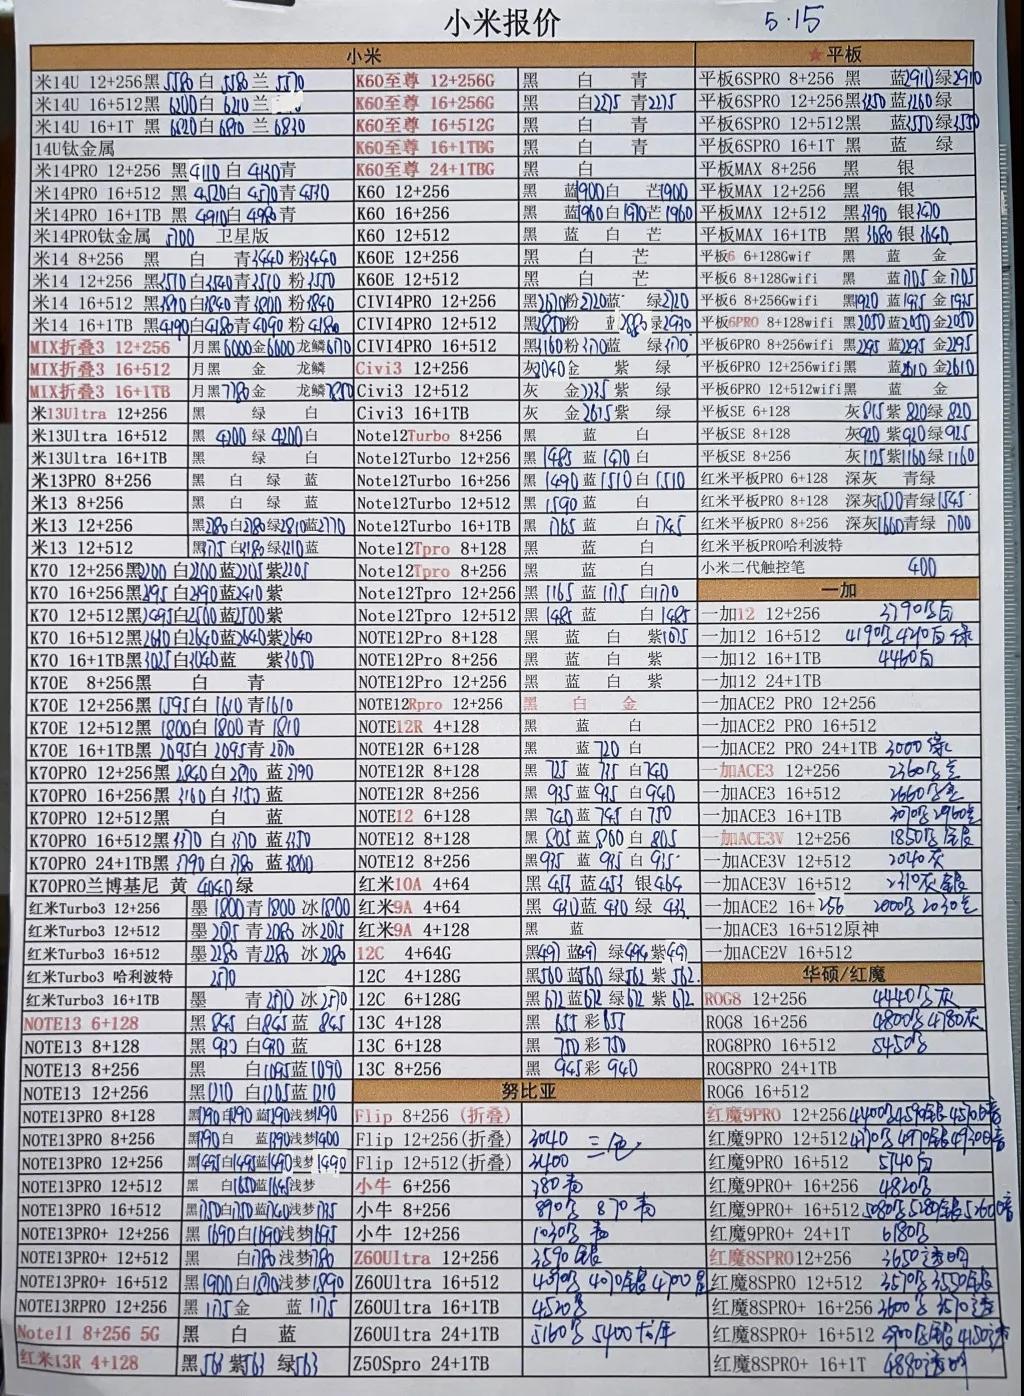 小米报价
5.15
小米
米14U 12+256黑5580白 5580 兰 5570
米14U 16+512黑6200白 6210 兰
米14U 16+1T 黑 6820白 6810 兰 6830
14U钛金属
米14PRO 12+256 黑4110白 4130青
米14PRO 16+512 黑4520白 4570青4730
米14PRO 16+1TB 黑 4910白 4980青
米14PRO钛金属 5700 卫星版
米14 8+256 黑 白 青3440粉3440
米14 12+256 黑3570白3540青3510 粉3550
米14 16+512 黑3890白3840青3800 粉3840
米14 16+1TB 黑4190白4180青4090 粉4180
MIX折叠3 12+256 月黑6000金6600龙鳞6170
MIX折叠3 16+512 月黑 金 龙鳞
MIX折叠3 16+1TB 月黑7780金 龙鳞
米13Ultra 12+256 黑 绿 白
米13Ultra 16+512 黑 4200 绿 4200白
米13Ultra 16+1TB 黑 绿 白
米13PRO 8+256 黑 白 绿 蓝
米13 8+256 黑 白 绿 蓝
米13 12+256 黑2780白2780绿2810蓝2770
米13 12+512 黑3175白3180绿3210蓝
K70 12+256黑2200 白2200蓝2205紫2205
K70 16+256黑 白 蓝2410紫
K70 12+512黑2495白2500蓝2500紫
K70 16+512黑2630白2640蓝2640紫2640
K70 16+1TB黑3025白3040蓝 紫3050
K70E 8+256黑 白 青
K70E 12+256黑 1595白 1610 青1610
K70E 12+512黑 1800白1800 青 1810
K70E 16+1TB黑 2095白 2095青 2070
K70PRO 12+256黑 2840白2870 蓝2790
K70PRO 16+256黑 3160白3150 蓝
K70PRO 12+512黑 白 蓝
K70PRO 16+512黑3370白 3370 蓝3350
K70PRO 24+1TB黑3790白 3780 蓝3800
K70PRO兰博基尼 黄 4040绿
红米Turbo3 12+256 墨 1800青1800 冰1800
红米Turbo3 12+512 墨 2075青2080 冰2075
红米Turbo3 16+512 墨 2280 青2280 冰2280
红米Turbo3 哈利波特 2570
红米Turbo3 16+1TB 墨 青2570 冰2570
NOTE13 6+128 黑 845 白845蓝 845
NOTE13 8+128 黑 930 白930 蓝
NOTE13 8+256 黑 白1095蓝1090
NOTE13 12+256 黑1210 白1205蓝1210
NOTE13PRO 8+128 黑1190白1190蓝1290浅梦1290
NOTE13PRO 8+256 黑1390白 蓝1390浅梦1400
NOTE13PRO 12+256 黑1495白1495蓝1490浅梦1490
NOTE13PRO 12+512 黑 白1650蓝1645浅梦
NOTE13PRO 16+512 黑1750白1750蓝1740浅梦1735
NOTE13PRO+ 12+256 黑1690白1690浅梦1695
NOTE13PRO+ 12+512 黑 白1780浅梦1780
NOTE13PRO+ 16+512 黑1900白1870浅梦1890
NOTE13RPRO 12+256 黑1175金 蓝 1175
Note11 8+256 5G 黑 白 蓝
红米13R 4+128 黑563 紫563 绿563
K60至尊 12+256G 黑 白 青
K60至尊 16+256G 黑 白2275 青2275
K60至尊 16+512G 黑 白 青
K60至尊 16+1TBG 黑 白 青
K60至尊 24+1TBG 黑 白
K60 12+256 黑 蓝1900白 芒1900
K60 16+256 黑 蓝1960白1970芒1960
K60 12+512 黑 蓝 白 芒
K60E 12+256 黑 白 芒
K60E 12+512 黑 白 芒
CIVI4PRO 12+256 黑2670粉2720蓝 绿2720
CIVI4PRO 12+512 黑2850粉 蓝2880绿2930
CIVI4PRO 16+512 黑3160粉3170蓝 绿3170
Civi3 12+256 灰2040金 紫 绿
Civi3 12+512 灰 金2235紫 绿
Civi3 16+1TB 灰 金2615紫 绿
Note12Turbo 8+256 黑 蓝 白
Note12Turbo 12+256 黑 1485 蓝 1470 白
Note12Turbo 16+256 黑 1490 蓝1510白1510
Note12Turbo 12+512 黑1590 蓝 白
Note12Turbo 16+1TB 黑 1765 蓝 白1745
Note12Tpro 8+128 黑 蓝 白
Note12Tpro 8+256 黑 蓝 白
Note12Tpro 12+256 黑 1165 蓝 1175 白1170
Note12Tpro 12+512 黑1485 蓝 白1485
NOTE12Pro 8+128 黑 蓝 白 紫1075
NOTE12Pro 8+256 黑 蓝 白 紫
NOTE12Pro 12+256 黑 蓝 白 紫
NOTE12Rpro 12+256 黑 白 金
NOTE12R 4+128 黑 蓝 白
NOTE12R 6+128 黑 蓝 720 白
NOTE12R 8+128 黑 725 蓝 735 白740
NOTE12R 8+256 黑 935 蓝 935 白 940
NOTE12 6+128 黑 740 蓝 745 白 750
NOTE12 8+128 黑 805 蓝 800 白 805
NOTE12 8+256 黑935 蓝 935 白 935
红米10A 4+64 黑 453 蓝453 银464
红米9A 4+64 黑 430蓝 430 绿 433
红米9A 4+128 黑 蓝
12C 4+64G 黑491 蓝491 绿494紫491
12C 4+128G 黑560 蓝560 绿562 紫562
12C 6+128G 黑612 蓝612 绿612 紫612
13C 4+128 黑 655 彩 655
13C 6+128 黑 750彩 750
13C 8+256 黑 945彩 940
努比亚
Flip 8+256 (折叠)
Flip 12+256(折叠) 3040 三色
Flip 12+512(折叠) 3400
小牛 6+256 780
小牛 8+256 890 870
小牛 12+256 1030
Z60Ultra 12+256 3590银
Z60Ultra 16+512 4070银
Z60Ultra 16+1TB 4520
Z60Ultra 24+1TB 5160 5400
Z50Spro 24+1TB
★平板
平板6SPRO 8+256 黑 蓝2910绿2910
平板6SPRO 12+256黑3250 蓝3260绿
平板6SPRO 12+512黑 蓝3550绿3550
平板6SPRO 16+1TB 黑 蓝 绿
平板MAX 8+256 黑 银
平板MAX 12+256 黑 银
平板MAX 12+512 黑3390 银
平板MAX 16+1TB 黑3680 银3640
平板6 6+128Gwif 黑 蓝 金
平板6 8+128Gwifi 黑 蓝1705金1705
平板6 8+256Gwifi 黑1920 蓝1935金1935
平板6PRO 8+128wifi 黑2050蓝2050金2050
平板6PRO 8+256wifi 黑2295 蓝2295金2295
平板6PRO 12+256wifi黑 蓝2610金2610
平板6PRO 12+512wifi黑 蓝 金
平板SE 6+128 灰815紫820绿 820
平板SE 8+128 灰920紫920绿925
平板SE 8+256 灰1175紫1160绿1160
红米平板PRO 6+128 深灰 青绿
红米平板PRO 8+128 深灰1520青绿1545
红米平板PRO 8+256 深灰1660青绿 1700
红米平板PRO哈利波特
小米二代触控笔 400
一加
一加12 12+256 3790 白
一加12 16+512 白 绿
一加12 16+1TB 4460白
一加12 24+1TB
一加ACE2 PRO 12+256
一加ACE2 PRO 16+512
一加ACE2 PRO 24+1TB 3000绿
一加ACE3 12+256 2360
一加ACE3 16+512 2660
一加ACE3 16+1TB 3070 2960
一加ACE3V 12+256 1850 银
一加ACE3V 12+512 2040灰
一加ACE3V 16+512 2310灰 银
一加ACE2 16+256 2000 2030
一加ACE3 16+512原神
一加ACE2V 16+512
华硕/红魔
ROG8 12+256 4440 灰
ROG8 16+256 4800 4780灰
ROG8PRO 16+512 5450
ROG8PRO 24+1TB
ROG6 16+512
红魔9PRO 12+256 4400 4590银 4510暗
红魔9PRO 12+512 4770 4970银 4930暗
红魔9PRO 16+512 5140白
红魔9PRO+ 16+256 4820
红魔9PRO+ 16+512 5080 5280银 5260暗
红魔9PRO+ 24+1T 6180
红魔8SPRO12+256 3650透明
红魔8SPRO 12+512 3570 3550银
红魔8SPRO+ 16+256 3600 3570透
红魔8SPRO+ 16+512 银 4150透
红魔8SPRO+ 16+1T 4880透明